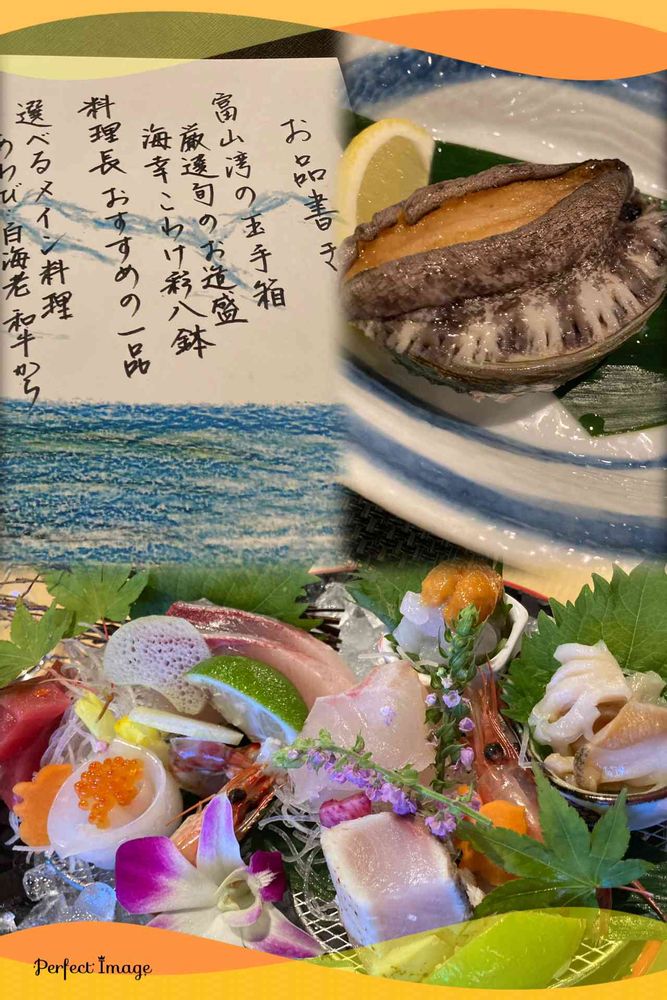 お品書き
富山湾の玉手箱
厳選旬のお造盛
海幸こわけ彩八鉢
料理長 おすすめの一品
選べるメイン料理
あわび・白海老 和牛から
Perfect Image